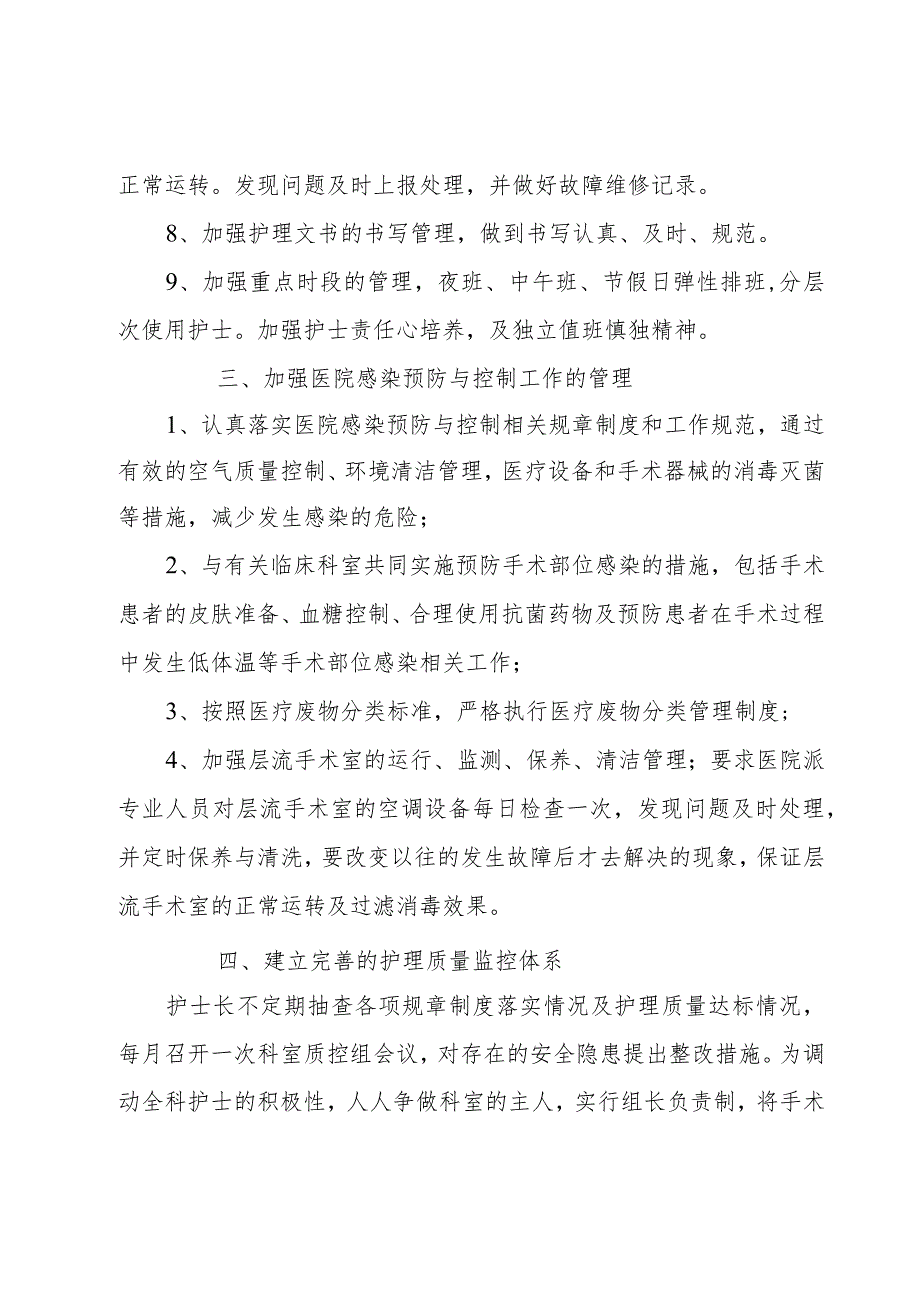 正常运转。发现问题及时上报处理，并做好故障维修记录。
8、加强护理文书的书写管理，做到书写认真、及时、规范。
9、加强重点时段的管理，夜班、中午班、节假日弹性排班,分层
次使用护士。加强护士责任心培养，及独立值班慎独精神。
三、加强医院感染预防与控制工作的管理
1、认真落实医院感染预防与控制相关规章制度和工作规范，通过
有效的空气质量控制、环境清洁管理，医疗设备和手术器械的消毒灭菌
等措施，减少发生感染的危险；
2、与有关临床科室共同实施预防手术部位感染的措施，包括手术
患者的皮肤准备、血糖控制、合理使用抗菌药物及预防患者在手术过程
中发生低体温等手术部位感染相关工作；
3、按照医疗废物分类标准，严格执行医疗废物分类管理制度;
4、加强层流手术室的运行、监测、保养、清洁管理；要求医院派
专业人员对层流手术室的空调设备每日检查一次，发现问题及时处理，
并定时保养与清洗，要改变以往的发生故障后才去解决的现象，保证层
流手术室的正常运转及过滤消毒效果。
四、建立完善的护理质量监控体系
护士长不定期抽查各项规章制度落实情况及护理质量达标情况，
每月召开一次科室质控组会议，对存在的安全隐患提出整改措施。为调
动全科护士的积极性，人人争做科室的主人，实行组长负责制，将手术